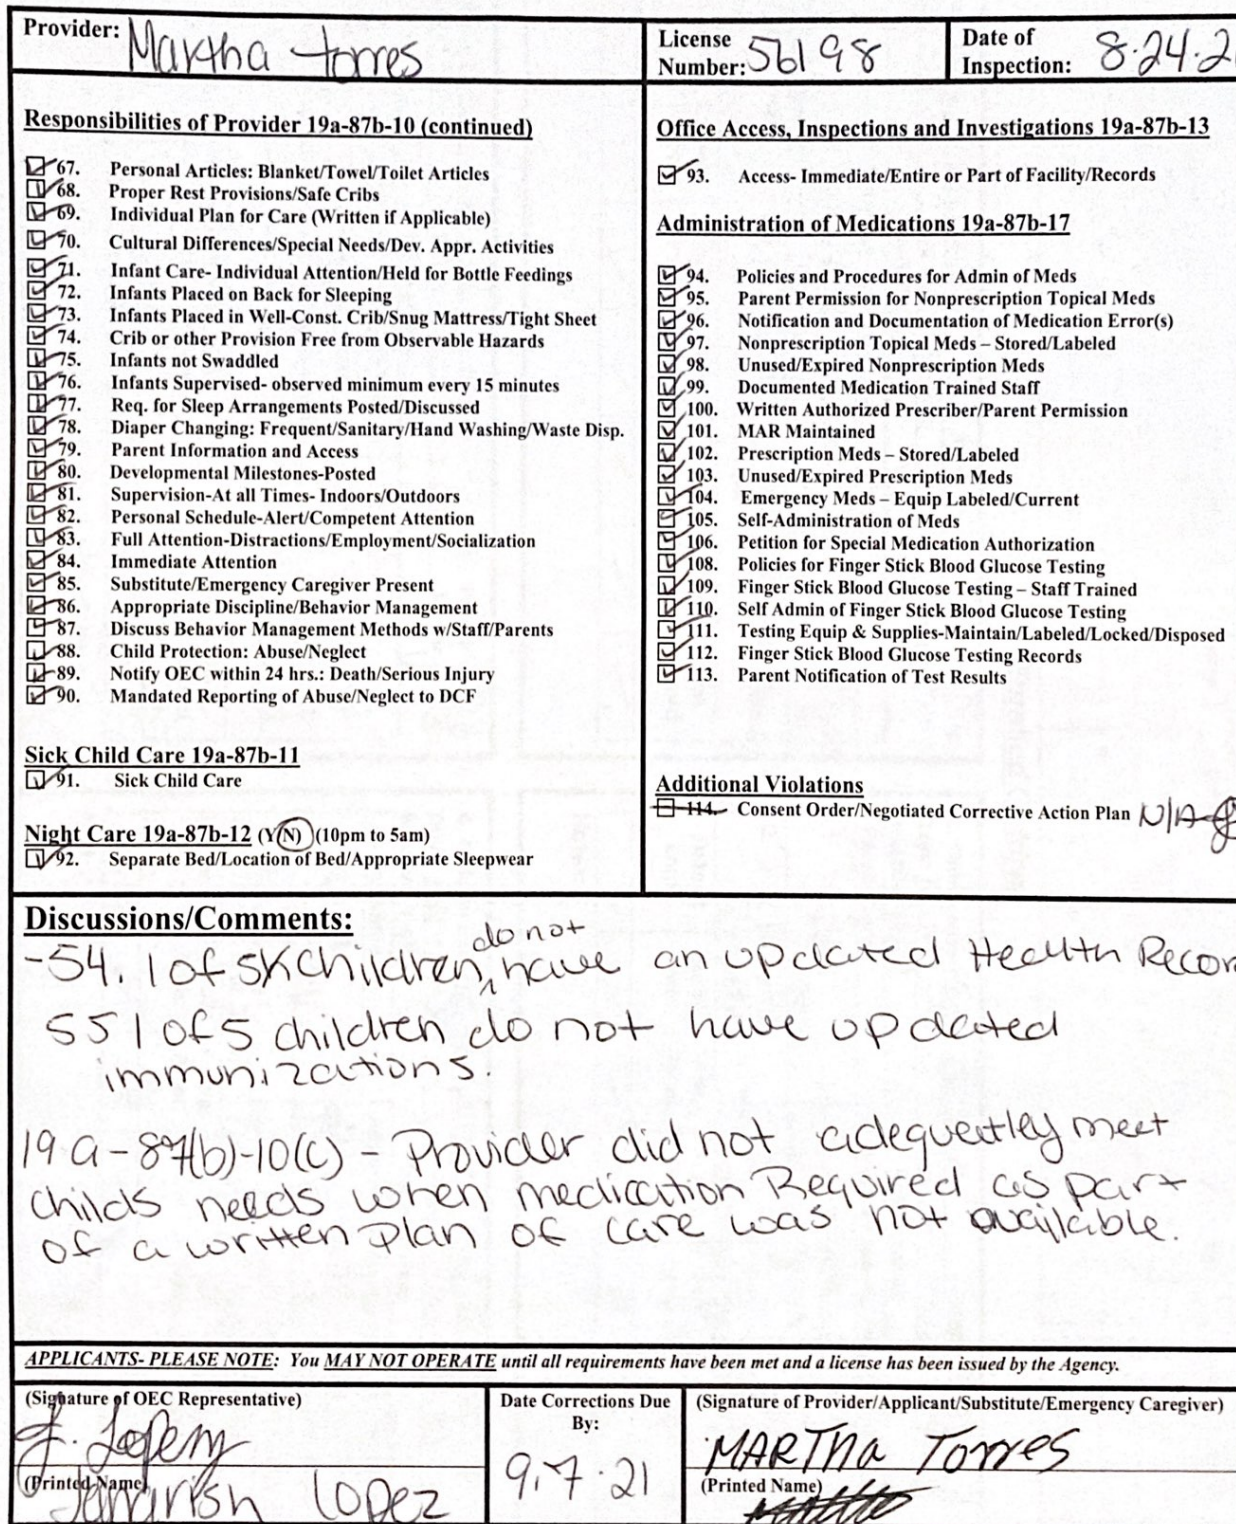 Provider: Martha Torres
License Number: 56198
Date of Inspection: 8.24.2
Responsibilities of Provider 19a-87b-10 (continued)
67. Personal Articles: Blanket/Towel/Toilet Articles
68. Proper Rest Provisions/Safe Cribs
69. Individual Plan for Care (Written if Applicable)
70. Cultural Differences/Special Needs/Dev. Appr. Activities
71. Infant Care- Individual Attention/Held for Bottle Feedings
72. Infants Placed on Back for Sleeping
73. Infants Placed in Well-Const. Crib/Snug Mattress/Tight Sheet
74. Crib or other Provision Free from Observable Hazards
75. Infants not Swaddled
76. Infants Supervised- observed minimum every 15 minutes
77. Req. for Sleep Arrangements Posted/Discussed
78. Diaper Changing: Frequent/Sanitary/Hand Washing/Waste Disp.
79. Parent Information and Access
80. Developmental Milestones-Posted
81. Supervision-At all Times- Indoors/Outdoors
82. Personal Schedule-Alert/Competent Attention
83. Full Attention-Distractions/Employment/Socialization
84. Immediate Attention
85. Substitute/Emergency Caregiver Present
86. Appropriate Discipline/Behavior Management
87. Discuss Behavior Management Methods w/Staff/Parents
88. Child Protection: Abuse/Neglect
89. Notify OEC within 24 hrs.: Death/Serious Injury
90. Mandated Reporting of Abuse/Neglect to DCF
Sick Child Care 19a-87b-11
91. Sick Child Care
Night Care 19a-87b-12 (Y/N) (10pm to 5am)
92. Separate Bed/Location of Bed/Appropriate Sleepwear
Office Access, Inspections and Investigations 19a-87b-13
93. Access- Immediate/Entire or Part of Facility/Records
Administration of Medications 19a-87b-17
94. Policies and Procedures for Admin of Meds
95. Parent Permission for Nonprescription Topical Meds
96. Notification and Documentation of Medication Error(s)
97. Nonprescription Topical Meds – Stored/Labeled
98. Unused/Expired Nonprescription Meds
99. Documented Medication Trained Staff
100. Written Authorized Prescriber/Parent Permission
101. MAR Maintained
102. Prescription Meds – Stored/Labeled
103. Unused/Expired Prescription Meds
104. Emergency Meds – Equip Labeled/Current
105. Self-Administration of Meds
106. Petition for Special Medication Authorization
108. Policies for Finger Stick Blood Glucose Testing
109. Finger Stick Blood Glucose Testing – Staff Trained
110. Self Admin of Finger Stick Blood Glucose Testing
111. Testing Equip & Supplies-Maintain/Labeled/Locked/Disposed
112. Finger Stick Blood Glucose Testing Records
113. Parent Notification of Test Results
Additional Violations
114. Consent Order/Negotiated Corrective Action Plan N/A
Discussions/Comments:
-54. 1 of 5 children do not have an updated Health Recor
55 1 of 5 children do not have updated
immunizations.
19a-87(b)-10(c) - Provider did not adequeatley meet
childs needs when medication Required as part
of a written plan of care was not available.
APPLICANTS- PLEASE NOTE: You MAY NOT OPERATE until all requirements have been met and a license has been issued by the Agency.
(Signature of OEC Representative)
J. Lopez
(Printed Name)
Lopez
Date Corrections Due By:
9.7.21
(Signature of Provider/Applicant/Substitute/Emergency Caregiver)
MARTha Torres
(Printed Name)